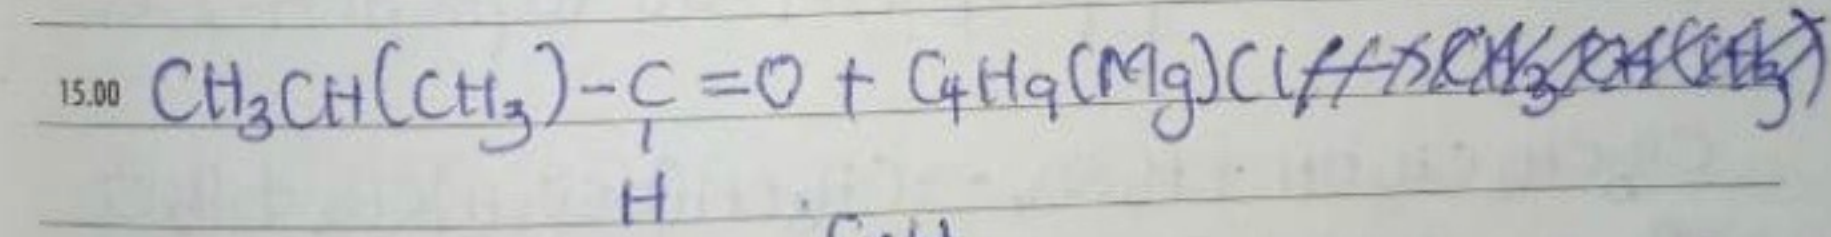 15.00 CH₃CH(CH₃)-C=O + C₄H₉(Mg)Cl
H